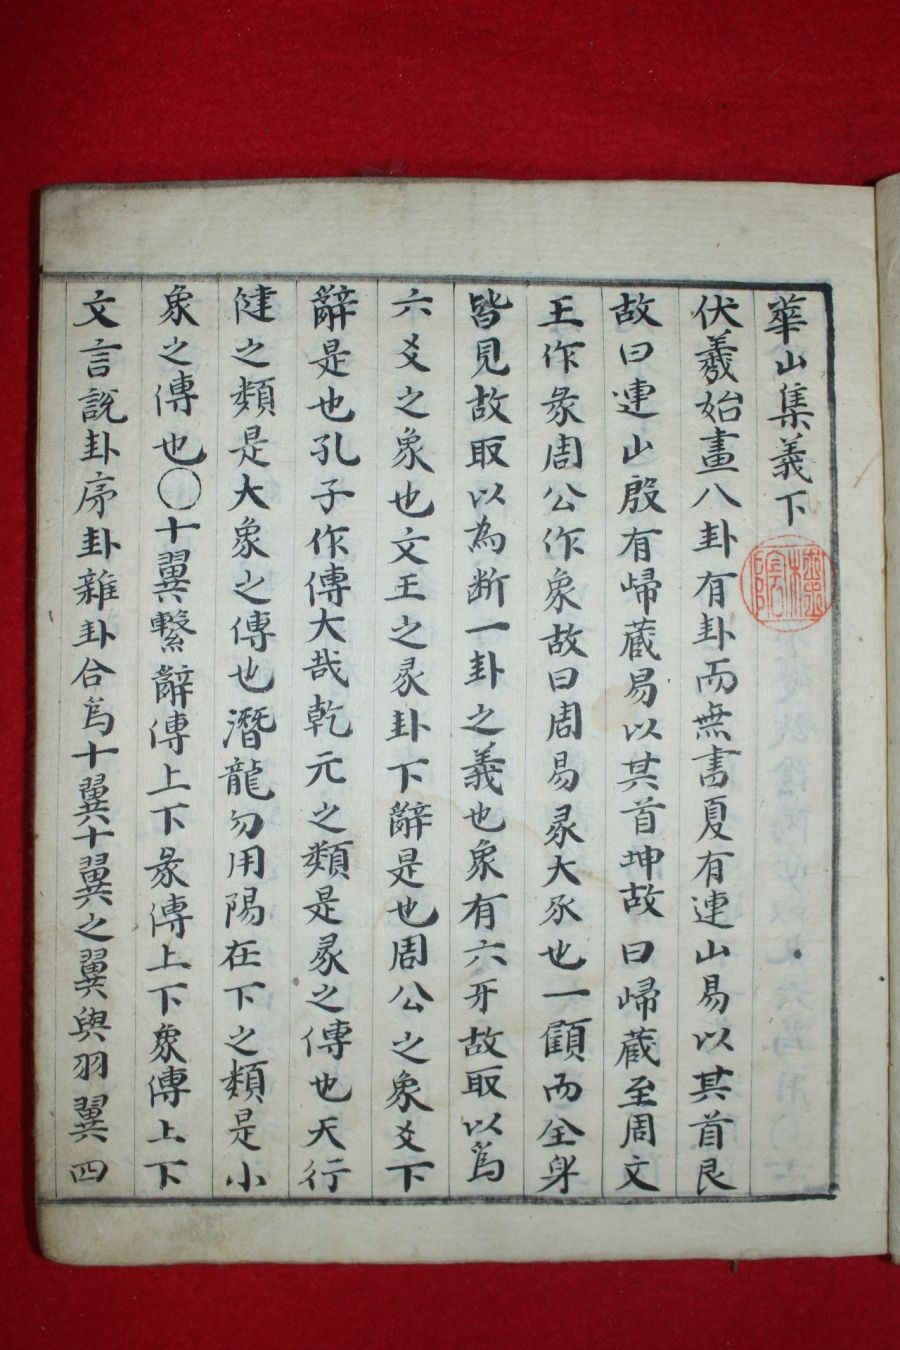 華山集義下
伏羲始畫八卦有卦而無書夏有連山易以其首艮
故曰連山殷有歸蔵易以其首坤故曰歸蔵至周文
王作彖周公作象故曰周易彖大豕也一顧而全身
皆見故取以為断一卦之義也象有六牙故取以爲
六爻之象也文王之彖卦下辭是也周公之象爻下
辭是也孔子作傳大哉乾元之類是彖之傳也天行
健之類是大象之傳也潛龍勿用陽在下之類是小
象之傳也〇十翼繫辭傳上下彖傳上下象傳上下
文言說卦序卦雜卦合爲十翼十翼之翼與羽翼四